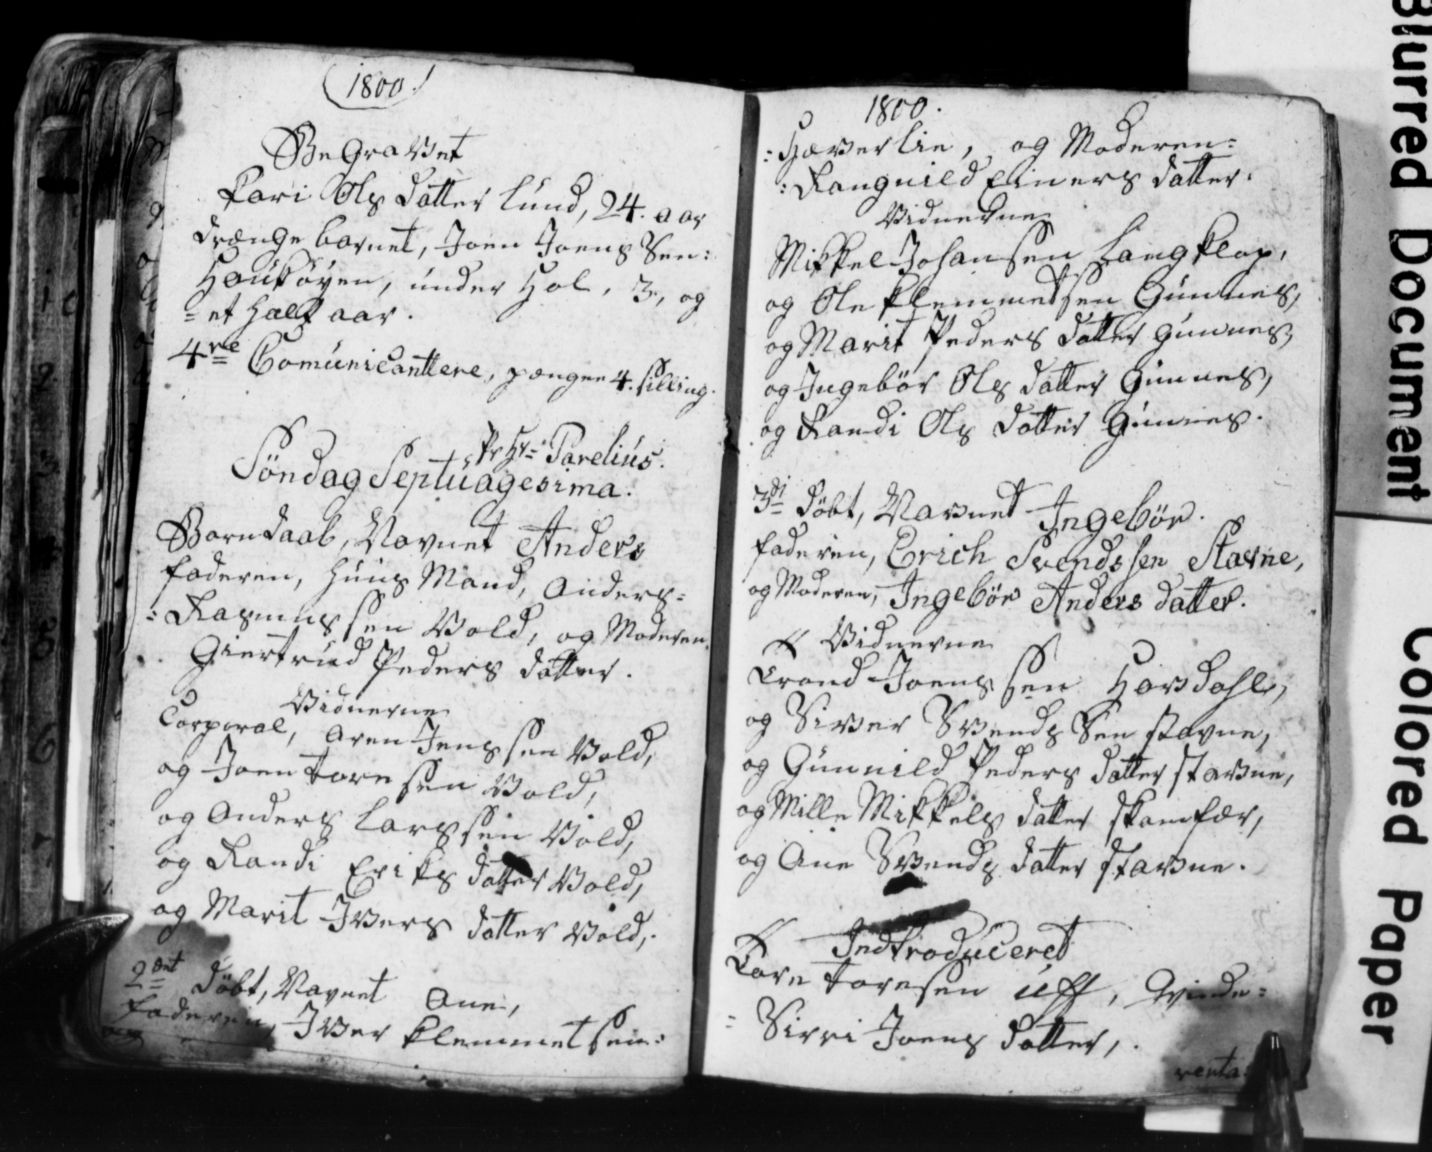 1800.
BeGraVet
Kari Ols Datter Lund, 24. aar
Drænge barnet, Joen Joens Sen:
Haukøyen, under Hol, 3, og
= et halft aar.
4re Comunicanttere, pengen 4. silling.
Pr Hr: Parelius.
Söndag Septuagesima.
Barn daab, Navnet Anders
faderen, huus Mand, Anders=
:Rasmussen Vold, og Moderen,
Giertrud Peders datter.
Vidnerne
Corporal, Aren Jenssen Vold,
og Joen toresen Vold,
og Anders Larssen Vold,
og Randi Eriks datter Vold,
og Marit Ivers datter Vold,
2det döbt, Navnet Ane,
faderen, Iver Klemmetsen:
1800.
:Hæverlie, og Moderen=
:Rangnild Einers datter.
Vidnerne
Mikkel Johansen Langklop,
og Ole Klemmetsen Gunnes,
og Marit Peders datter Gunnes,
og Ingebör Ols datter Gunnes,
og Randi Ols datter Gunnes.
3di döbt, Navnet Ingebör.
faderen, Erich Svendssen Stavne,
og Moderen, Ingebör Anders datter.
Vidnerne
Trond Joenssen Hovdahl,
og Siver Svends Sen stavne,
og Gunnild Peders datter stavne,
og Mille Mikkels datter skamfær,
og Ane Svends datter stavne.
Indtroduceret
Tore toresen Uff, Qvinde:
= Sirri Joens datter,
Blurred Document
Colored Paper